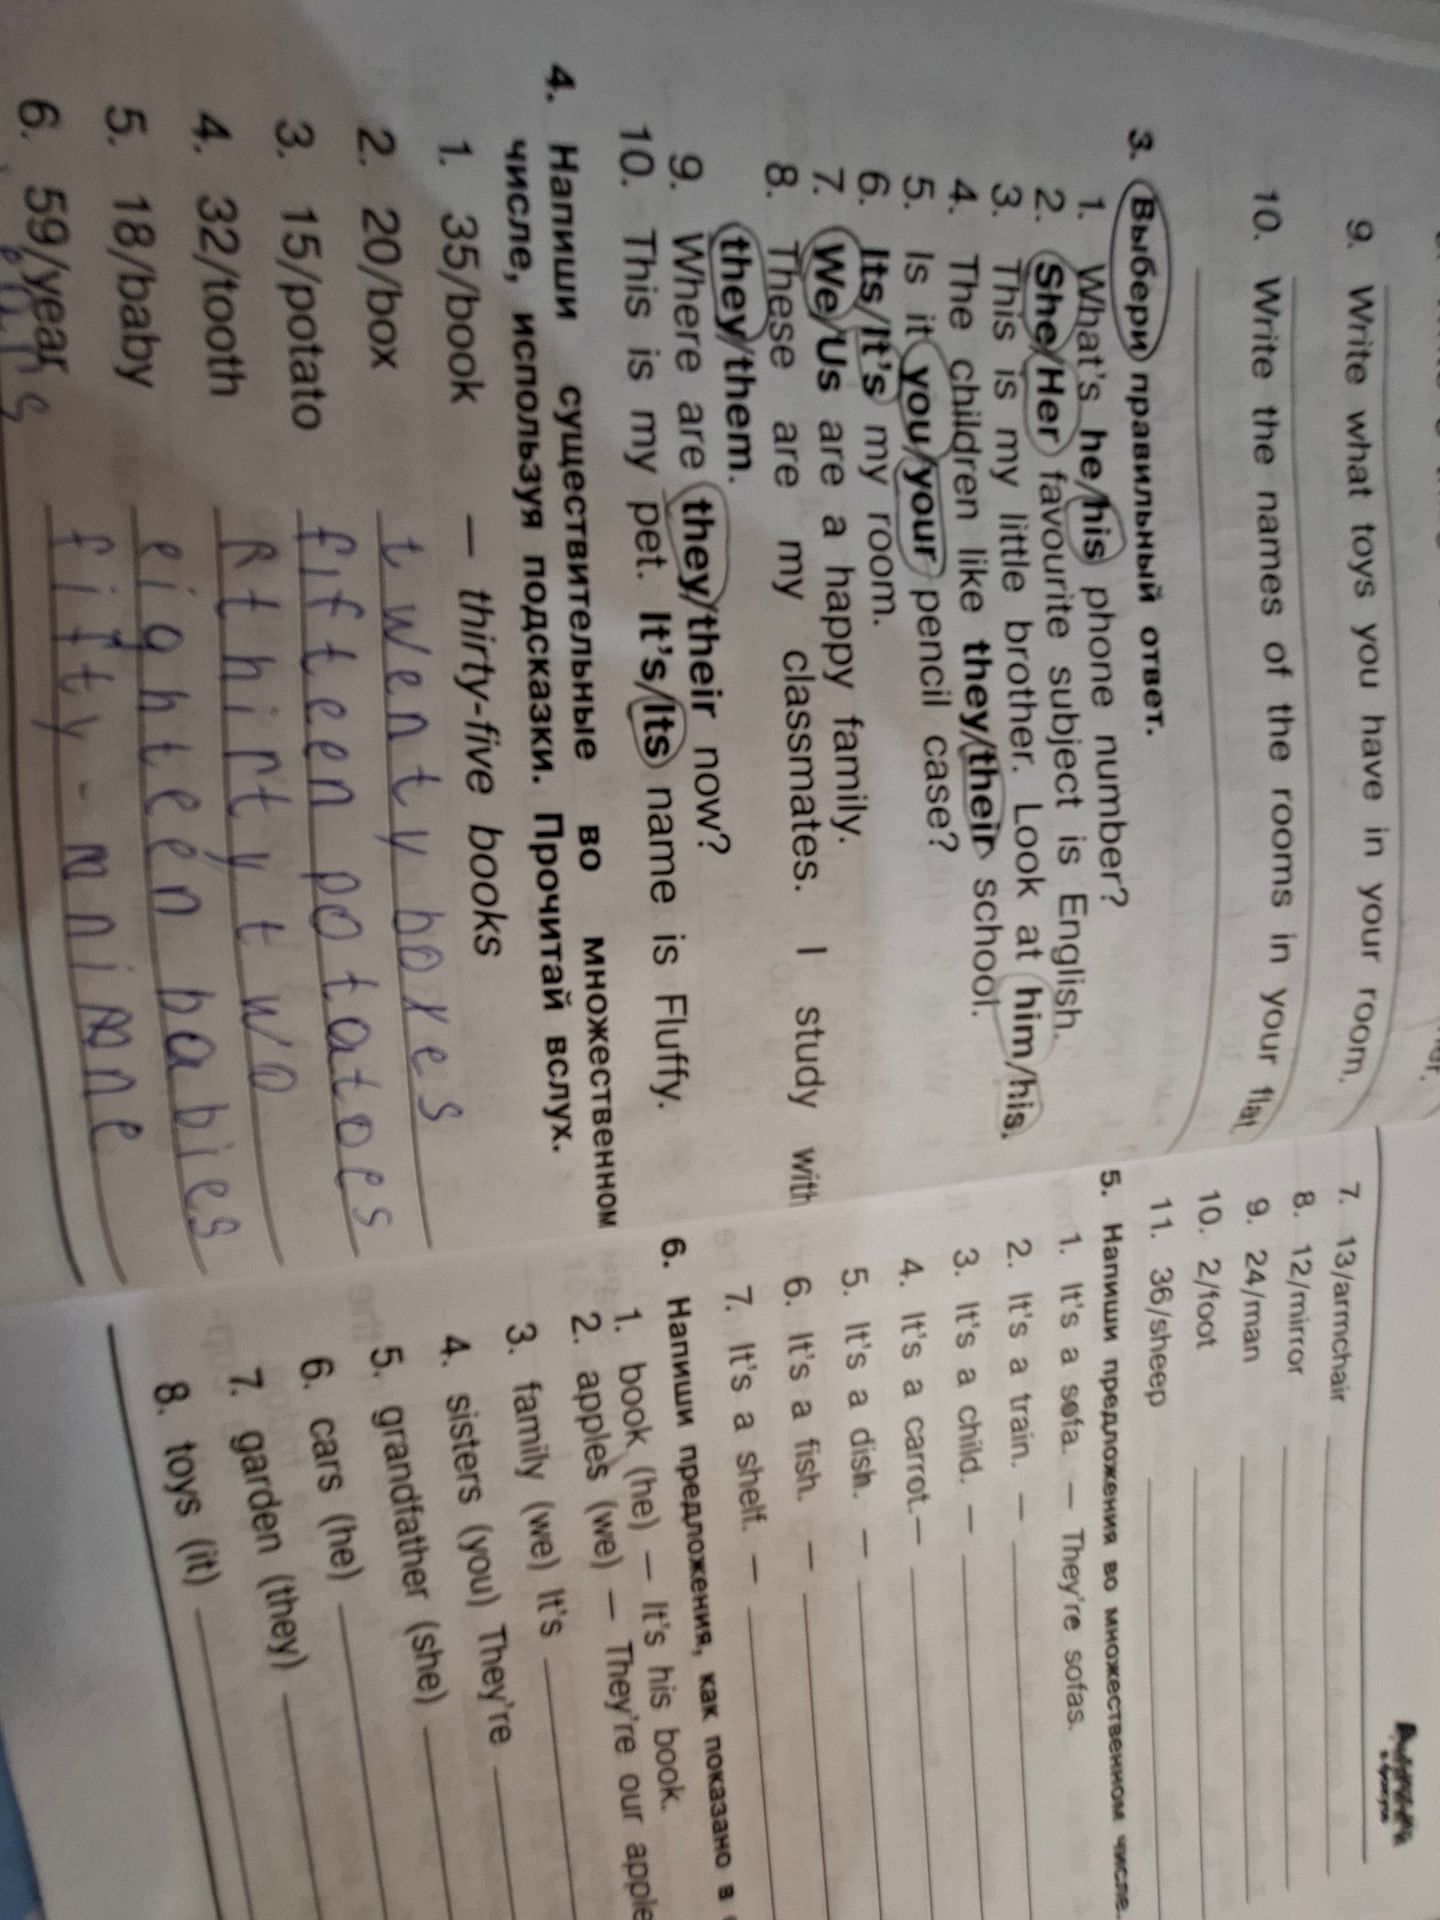 9. Write what toys you have in your room.
10. Write the names of the rooms in your flat.
3. Выбери правильный ответ.
1. What's he/his phone number?
2. She/Her favourite subject is English.
3. This is my little brother. Look at him/his.
4. The children like they/their school.
5. Is it you/your pencil case?
6. Its/It's my room.
7. We/Us are a happy family.
8. These are my classmates. I study with
they/them.
9. Where are they/their now?
10. This is my pet. It's/Its name is Fluffy.
4. Напиши существительные во множественном
числе, используя подсказки. Прочитай вслух.
1. 35/book — thirty-five books
2. 20/box twenty boxes
3. 15/potato fifteen potatoes
4. 32/tooth thirty two
5. 18/baby eighteen babies
6. 59/year fifty-
7. 13/armchair
8. 12/mirror
9. 24/man
10. 2/foot
11. 36/sheep
5. Напиши предложения во множественном числе.
1. It's a sofa. — They're sofas.
2. It's a train. —
3. It's a child. —
4. It's a carrot.—
5. It's a dish. —
6. It's a fish. —
7. It's a shelf. —
6. Напиши предложения, как показано в
1. book (he) — It's his book.
2. apples (we) — They're our apple
3. family (we) It's
4. sisters (you) They're
5. grandfather (she)
6. cars (he)
7. garden (they)
8. toys (it)